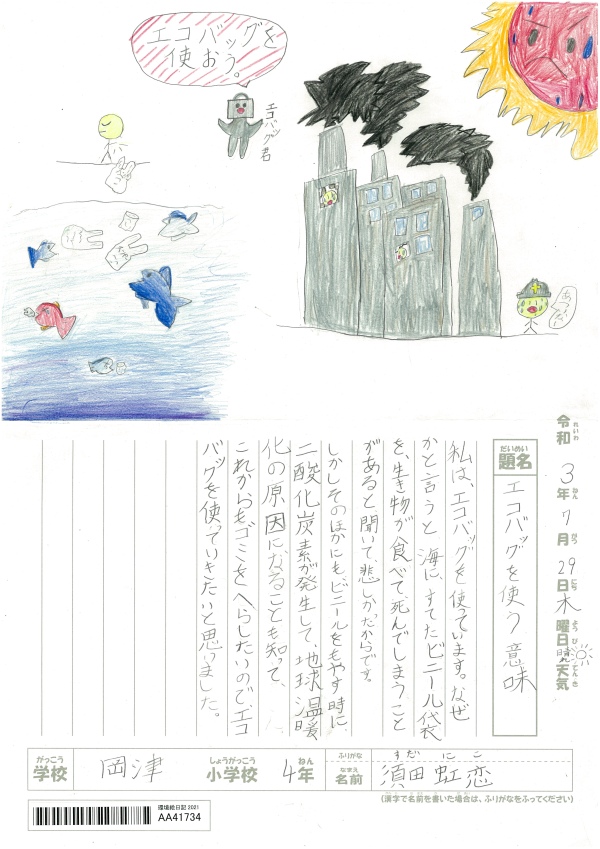 エコバッグを
使おう。
エコバッグ君
あついな
令和3年7月29日木曜日 天気
れいわ
ねん
がつ
にち
よう び
てん き
だいめい
題名
エコバッグを使う意味
私は、エコバッグを使っています。なぜ
かと言うと海に、すてたビニール袋
を、生き物が食べて、死んでしまうこと
があると聞いて、悲しかったからです。
しかしそのほかにもビニールをもやす時に、
二酸化炭素が発生して、地球温暖
化の原因になることも知って、
これからもゴミをへらしたいのでエコ
バッグを使っていきたいと思いました。
がっこう
学校
岡津
しょうがっこう
小学校
4年
ねん
ふりがな
すだ にこ
なまえ
名前
須田虹恋
(漢字で名前を書いた場合は、ふりがなをふってください)
環境絵日記 2021
AA41734